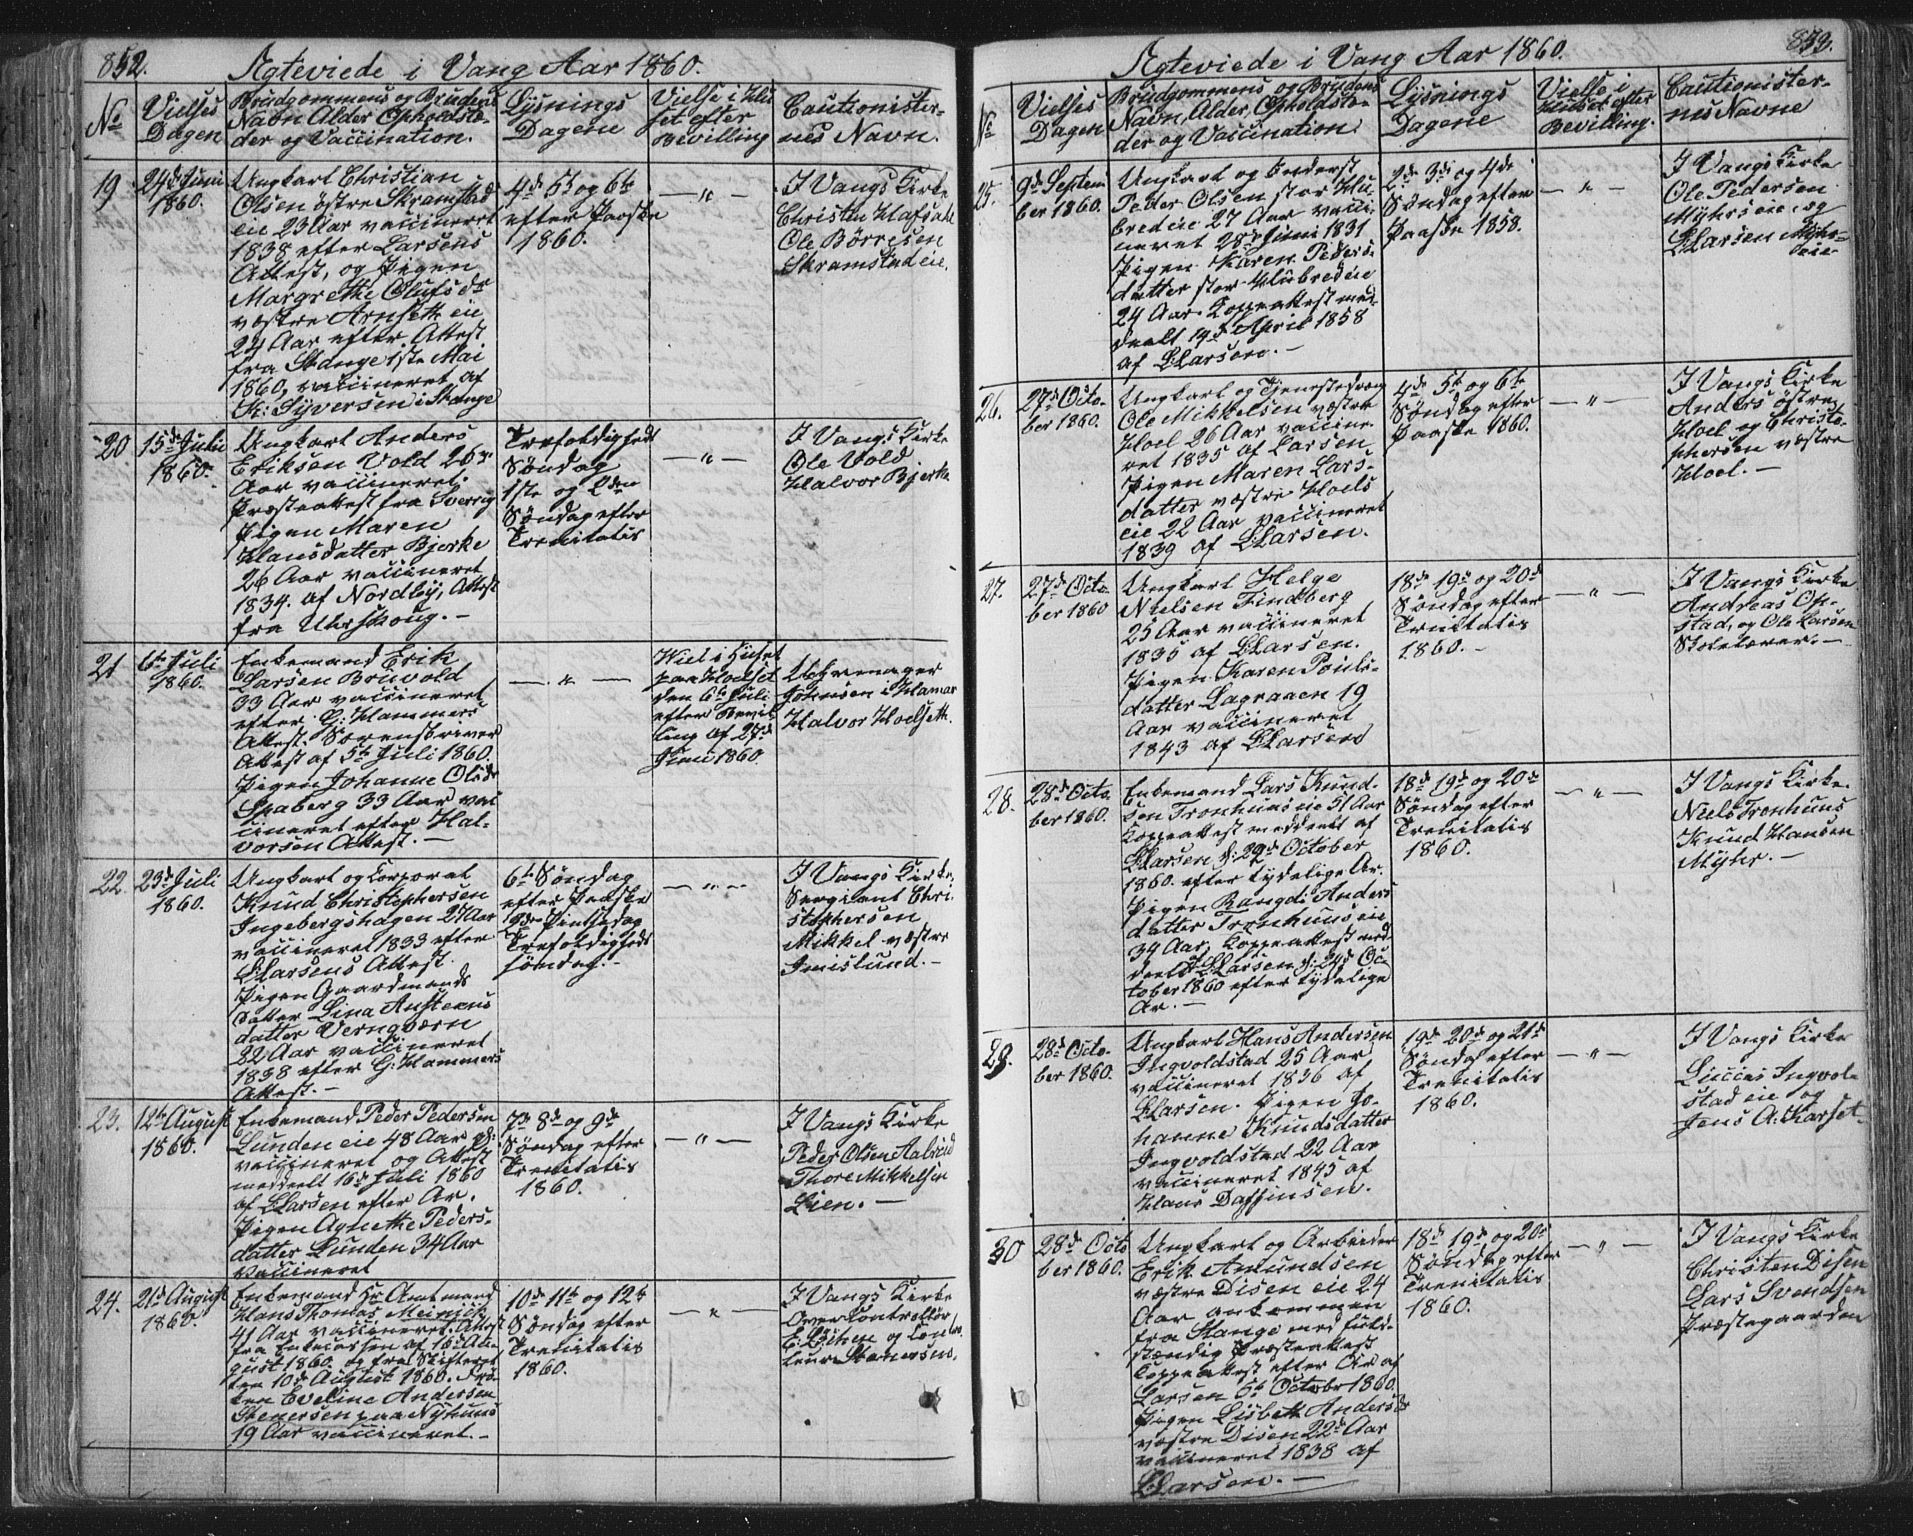 852.
Ægteviede i Vang Aar 1860.
No
Vielses
Dagen
Brudgommens og Brudens
Navn Alder Opholdste-
der og Vaccination.
Lysnings
Dagene
Vielse i Hu
set efter
Bevilling
Cautionister-
nes Navn.
19
24de Juni
1860.
Ungkarl Christian
Olsen østre Skramstad
eie 23 Aar vaccineret
1838 efter Larsens
Attest, og Pigen
Margrethe Olufsdr
væstre Arnseth eie
24 Aar efter Attest
fra Stange 1ste Mai
1860, vaccineret af
K: Syversen i Stange
4de 5te og 6te
efter Paaske
1860.
— " —
I Vangs Kirke
Christen Hafsal
Ole Børresen
Skramstadeie.
20
15de Juli
1860.
Ungkarl Anders
Eriksen Vold 26
Aar vaccineret
Præsteattest fra Sverrig
Pigen Maren
Hansdatter Bjerke
26 Aar vaccineret
1834. af Nordby, Attest
fra Urskoug. —
Trefoldigheds
Søndag
1ste og 2den
Søndag efter
Trenitatis
— " —
I Vangs Kirke
Ole Vold
Halvor Bjerke
21
6te Juli
1860.
Enkemand Erik
Larsen Bruvold
33 Aar vaccineret
efter G: Hammers
Attest. Sorenskriver
Attest af 5te Juli 1860.
Pigen Johanne Olsdr
Spaberg 33 Aar vac
cineret efter Hal-
vorsen Attest. —
— " —
Viet i Huset
paa Hoelset
den 6te Juli
efter Bevil
ling af 27de
Juni 1860
Uhrmager
Johnsen i Hamar
Halvor Hoelseth.
22
23de Juli
1860.
Ungkarl og Corporal
Knud Christophersen
Ingebergshagen 27 Aar
vaccineret 1833 efter
LLarsens Attest.
Pigen Gaardmands
datter Lina Austeens
datter Verngværn
22 Aar vaccineret
1838 efter G: Hammers
Attest. —
6te Søndag
efter Paaske
2den Pintsedag
Trefoldigheds
søndag. -
— " —
I Vangs Kirke,
Sergiant Chri-
stophersen
Mikkel væstre
Imislund. —
23.
12te August
1860.
Enkemand Peder Pedersen
Lunden eie 48 Aar
vaccineret og Attest
meddeelt 16de Juli 1860
af LLarsen efter Ar.
Pigen Agnethe Peders-
datter Lunden 34 Aar
Vaccineret
7de 8de og 9de
Søndag efter
Trenitatis
1860.
— " —
I Vangs Kirke
Peder Olsen Aalsrud
Thore Mikkelsen
Lien. —
24.
21de August
1860.
Enkemand Hr Amtmand
Hans Thomas Meinich
41 Aar vaccineret. Attest
fra Enkecassen af 16de Au-
gust 1860. og fra Skifteret
ten 10de August 1860. Frø-
ken Eveline Andersen
Stenersen paa Nyhuus
19 Aar vaccineret. —
10de 11te og 12te
Søndag efter
Trenitatis
1860.
— " —
I Vangs Kirke
Over Controllør
E: Lichen og Con
leur Stenersens.
853.
Ægteviede i Vang Aar 1860.
No
Vielses
Dagen
Brudgommens og Brudens
Navn, Alder, Opholdste-
der og Vaccination
Lysnings
Dagene
Vielse i
Huset efter
Bevilling.
Cautionister-
nes Navne
25.
9de Septem
ber 1860.
Ungkarl og Inderst
Peder Olsen stor Hu-
bred eie 27 Aar vacci-
neret 28de Juni 1831
Pigen Karen Peders-
datter stor Hubred eie
24 Aar. Koppeattest med-
deelt 19de April 1858
af LLarsen. —
2de 3de og 4de
Søndag efter
Paaske 1858.
— " —
I Vangs Kirke
Ole Pedersen
Myhrseie, og
LLarsen Myhrs-
eie
26.
27de Octo-
ber 1860.
Ungkarl og Tjenestedreng
Ole Mikkelsen væstre
Hoel 26 Aar vaccine-
ret 1835 af Larsen
Pigen Maren Lars-
datter væstre Hoels
eie 22 Aar vaccineret
1839 af LLarsen.
4de 5te og 6te
Søndag efter
Paaske 1860.
— " —
I Vangs Kirke
Anders østre
Hoel og Christo-
phersen væstre
Hoel. —
27.
27de Octo-
ber 1860
Ungkarl Helge
Nielsen Findberg
25 Aar vaccineret
1835 af LLarsen.
Pigen Karen Pouls-
datter Lagraaen 19
Aar vaccineret
1843 af LLarsen
18de 19de og 20de
Søndag efter
Trenitatis
1860. —
— " —
I Vangs Kirke
Andreas Op-
stad, og Ole Larsen
Skolelærer. —
28.
28de Octo-
ber 1860.
Enkemand Lars Knud-
sen Tronhuus eie 51 Aar
Koppeattest meddeelt af
LLarsen d: 22de October
1860 efter tydelige Ar.
Pigen Rangdi Anders
datter Tronhuus eie
34 Aar, Koppeattest med-
deelt LLarsen d: 24de Oc-
tober 1860 efter tydelige
Ar. —
18de 19de og 20de
Søndag efter
Trenitatis
1860.
— " —
I Vangs Kirke.
Niels Tronhuus
Knud Hansen
Myhr. —
29.
28de Octo-
ber 1860.
Ungkarl Hans Andersen
Ingvoldstad 25 Aar
vaccineret 1836 af
LLarsen. Pigen Jo-
hanne Knudsdatter
Ingvoldstad 22 Aar
vaccineret 1845 af
Hans Daffinsen.
19de 20de og 21de
Søndag efter
Trenitatis
1860.
— " —
I Vangs Kirke
Luccas Ingvold
stad eie og
Jens A: Karset.
30
28de Octo
ber 1860.
Ungkarl og Arbeider
Erik Amundsen
væstre Disen eie 24
Aar ankommen
fra Stange med fuld-
stændig Præsteattest
Koppeattest efter Ar af
Larsen 6te Octobr 1860.
Pigen Lisbeth Andersdr
væstre Disen 22de Aar
vaccineret 1838 af
LLarsen. —
18de 19de og 20de
Søndag efter
Trenitatis
1860.
— " —
I Vangs Kirke
Christen Disen
Lars Svendsen
Præstegaarden